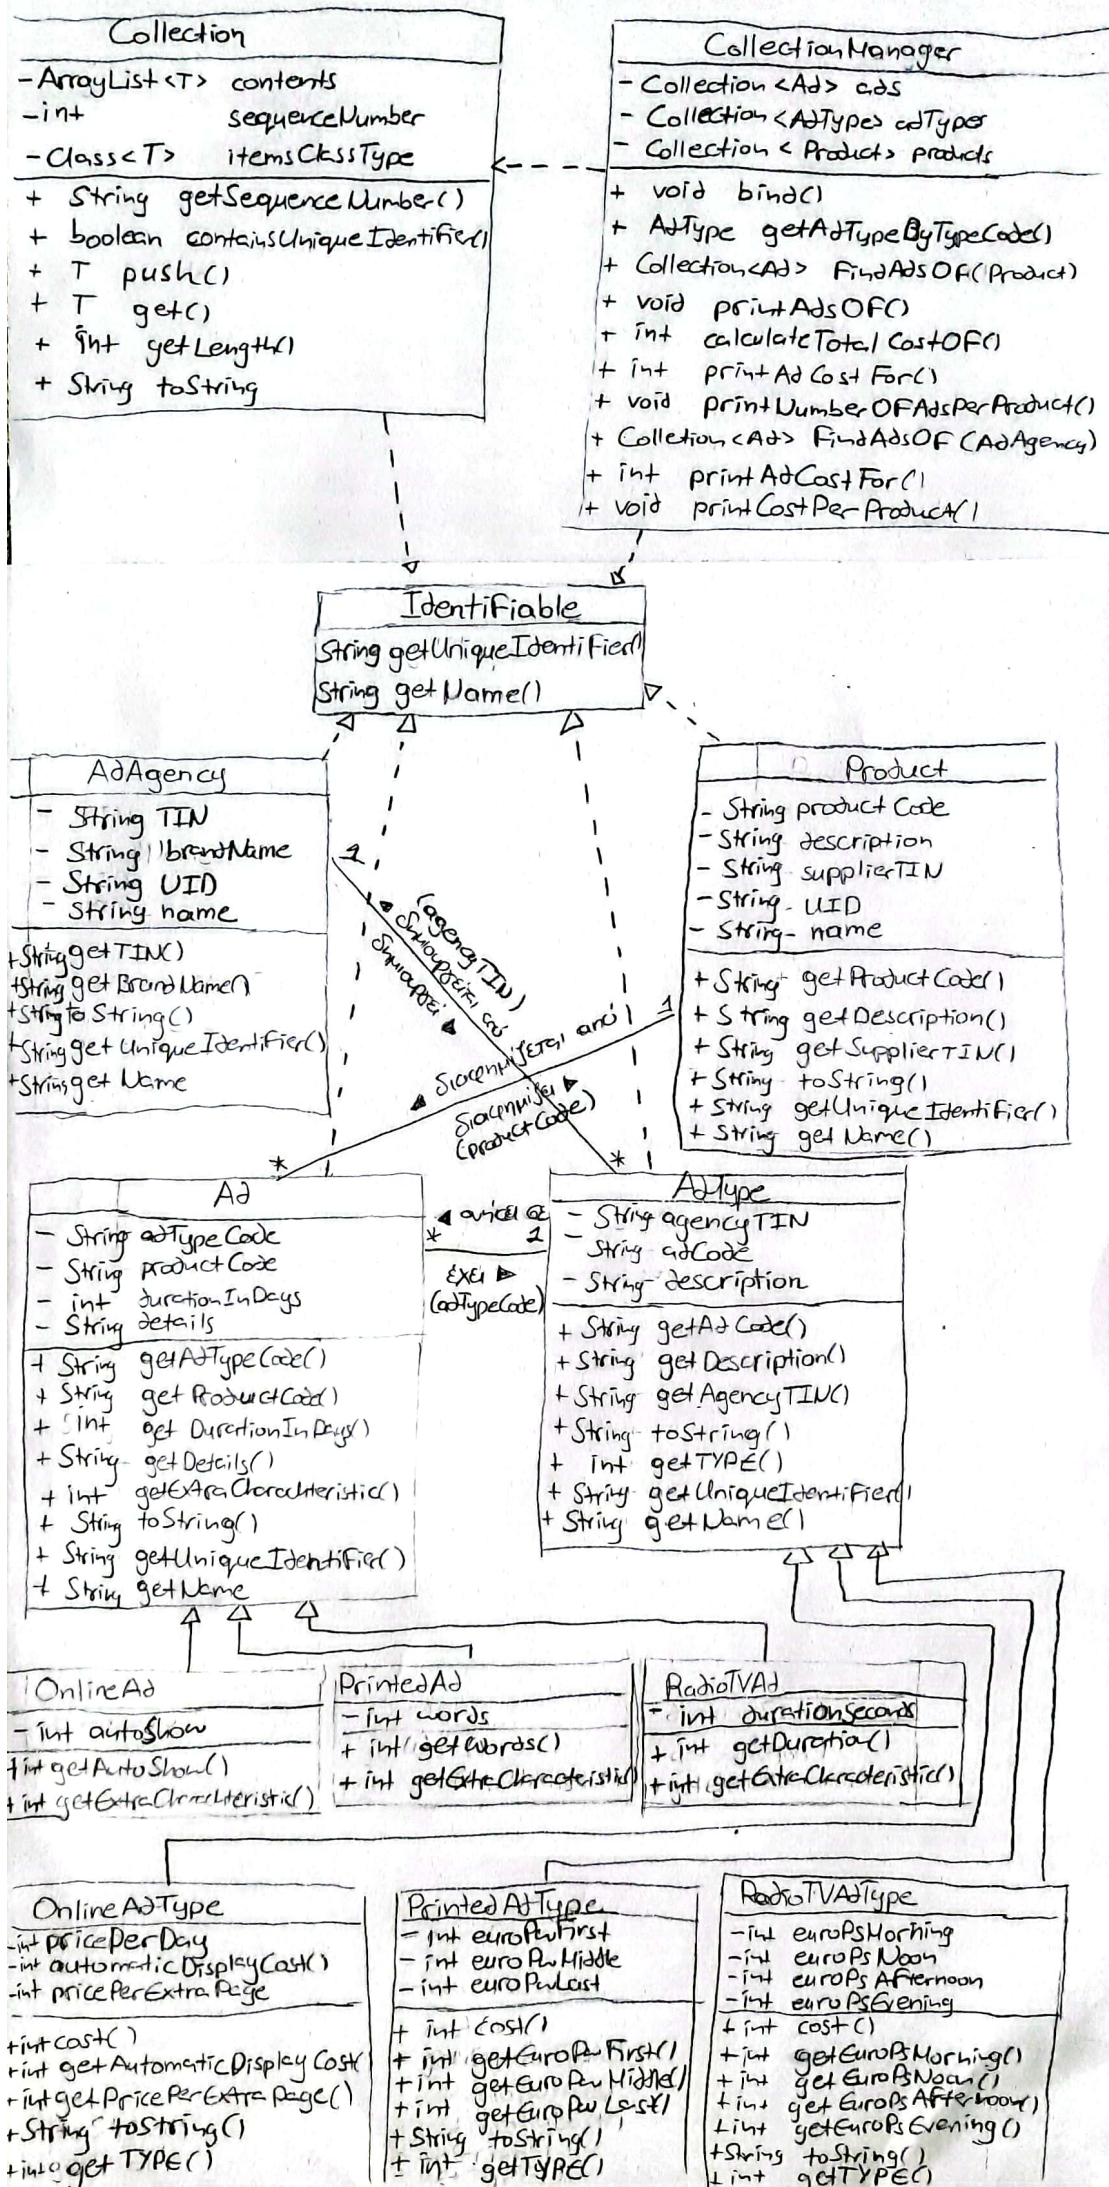 Collection
- ArrayList<T> contents
- int sequenceNumber
- Class<T> itemsClassType
+ String getSequenceNumber()
+ boolean containsUniqueIdentifier()
+ T push()
+ T get()
+ int getLength()
+ String toString
CollectionManager
- Collection <Ad> ads
- Collection <AdType> adTypes
- Collection < Product> products
+ void bind()
+ AdType getAdTypeByTypeCode()
+ Collection<Ad> FindAdsOf(Product)
+ void printAdsOF()
+ int calculateTotalCostOF()
+ int printAdCostFor()
+ void printNumberOFAdsPerProduct()
+ Colletion<Ad> FindAdsOF (AdAgency)
+ int printAdCostFor()
+ void printCostPerProduct()
IdentiFiable
String getUniqueIdentiFier()
String getName()
AdAgency
- String TIN
- String brandName
- String UID
- String name
+String getTIN()
+String getBrandName()
+String toString()
+String getUniqueIdentiFier()
+String get Name
Product
- String product Code
- String description
- String supplierTIN
- String UID
- String name
+ String getProductCode()
+ String getDescription()
+ String getSupplierTIN()
+ String toString()
+ String getUniqueIdentiFier()
+ String getName()
1
(agencyTIN)
◄ δημιουργείται από
δημιουργεί ►
1
◄ διαφημίζεται από
διαφημίζει ►
(productCode)
*
*
Ad
- String adTypeCode
- String productCode
- int durationInDays
- String details
+ String getAdTypeCode()
+ String getProductCode()
+ int get DurationInDays()
+ String getDetails()
+ int getExtraCharachteristic()
+ String toString()
+ String getUniqueIdentiFier()
+ String getName
◄ ανήκει σε
* 1
έχει ►
(adTypeCode)
AdType
- String agencyTIN
- String adCode
- String description
+ String getAdCode()
+ String getDescription()
+ String getAgencyTIN()
+ String toString()
+ int getTYPE()
+ String getUniqueIdentiFier()
+ String getName()
OnlineAd
- int autoShow
+ int getAutoShow()
+ int getExtraCharachteristic()
PrintedAd
- int words
+ int getWords()
+ int getExtraCharacteristic()
RadioTVAd
- int durationSeconds
+ int getDuration()
+ int getExtraCharacteristic()
OnlineAdType
-int pricePerDay
-int automaticDisplayCost()
-int pricePerExtraPage
+int cost()
+int getAutomaticDisplayCost(
+int getPricePerExtraPage()
+String toString()
+int getTYPE()
PrintedAdType
- int euroPwFirst
- int euroPwMiddle
- int euroPwLast
+ int cost()
+ int getEuroPwFirst()
+ int getEuroPwMiddle()
+ int getEuroPwLast()
+ String toString()
+ int getTYPE()
RadioTVAdType
- int euroPsMorning
- int euroPsNoon
- int euroPsAfternoon
- int euroPsEvening
+ int cost()
+ int getEuroPsMorning()
+ int getEuroPsNoon()
+ int getEuroPsAfternoon()
+ int getEuroPsEvening()
+String toString()
+ int getTYPE()